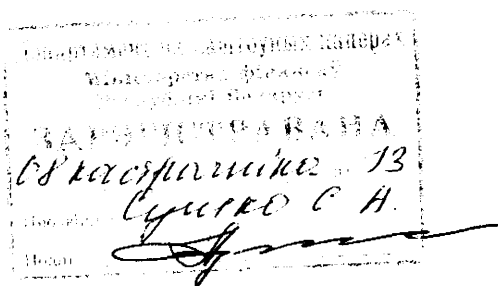 Дэпартамент па каштоўных паперах
Міністэрства фінансаў
Рэспублікі Беларусь
ЗАРЭГІСТРАВАНА
08 кастрычніка 13
Сушко С А.